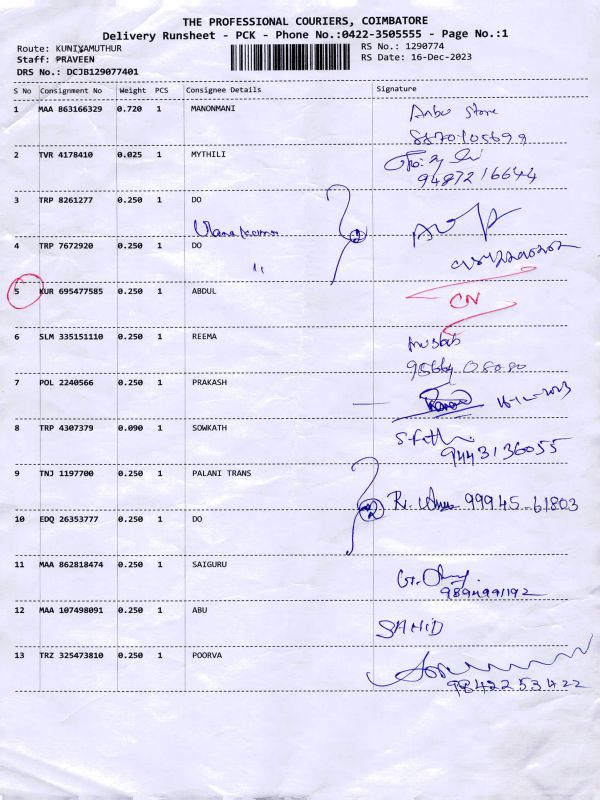 THE PROFESSIONAL COURIERS, COIMBATORE
Delivery Runsheet - PCK - Phone No.:0422-3505555 - Page No.:1
Route: KUNIYAMUTHUR RS No.: 1290774
Staff: PRAVEEN RS Date: 16-Dec-2023
DRS No.: DCJB129077401
S No Consignment No Weight PCS Consignee Details Signature
1 MAA 863166329 0.720 1 MANONMANI Anbu Store
8870105699
2 TVR 4178410 0.025 1 MYTHILI
9487216644
3 TRP 8261277 0.250 1 DO
4 TRP 7672920 0.250 1 DO
"
5 KUR 695477585 0.250 1 ABDUL CN
6 SLM 335151110 0.250 1 REEMA
7 POL 2240566 0.250 1 PRAKASH
8 TRP 4307379 0.090 1 SOWKATH
9443136055
9 TNJ 1197700 0.250 1 PALANI TRANS
2 99945-61803
10 EDQ 26353777 0.250 1 DO
11 MAA 862818474 0.250 1 SAIGURU
9894991192
12 MAA 107498091 0.250 1 ABU SAHID
13 TRZ 325473810 0.250 1 POORVA
9842253422